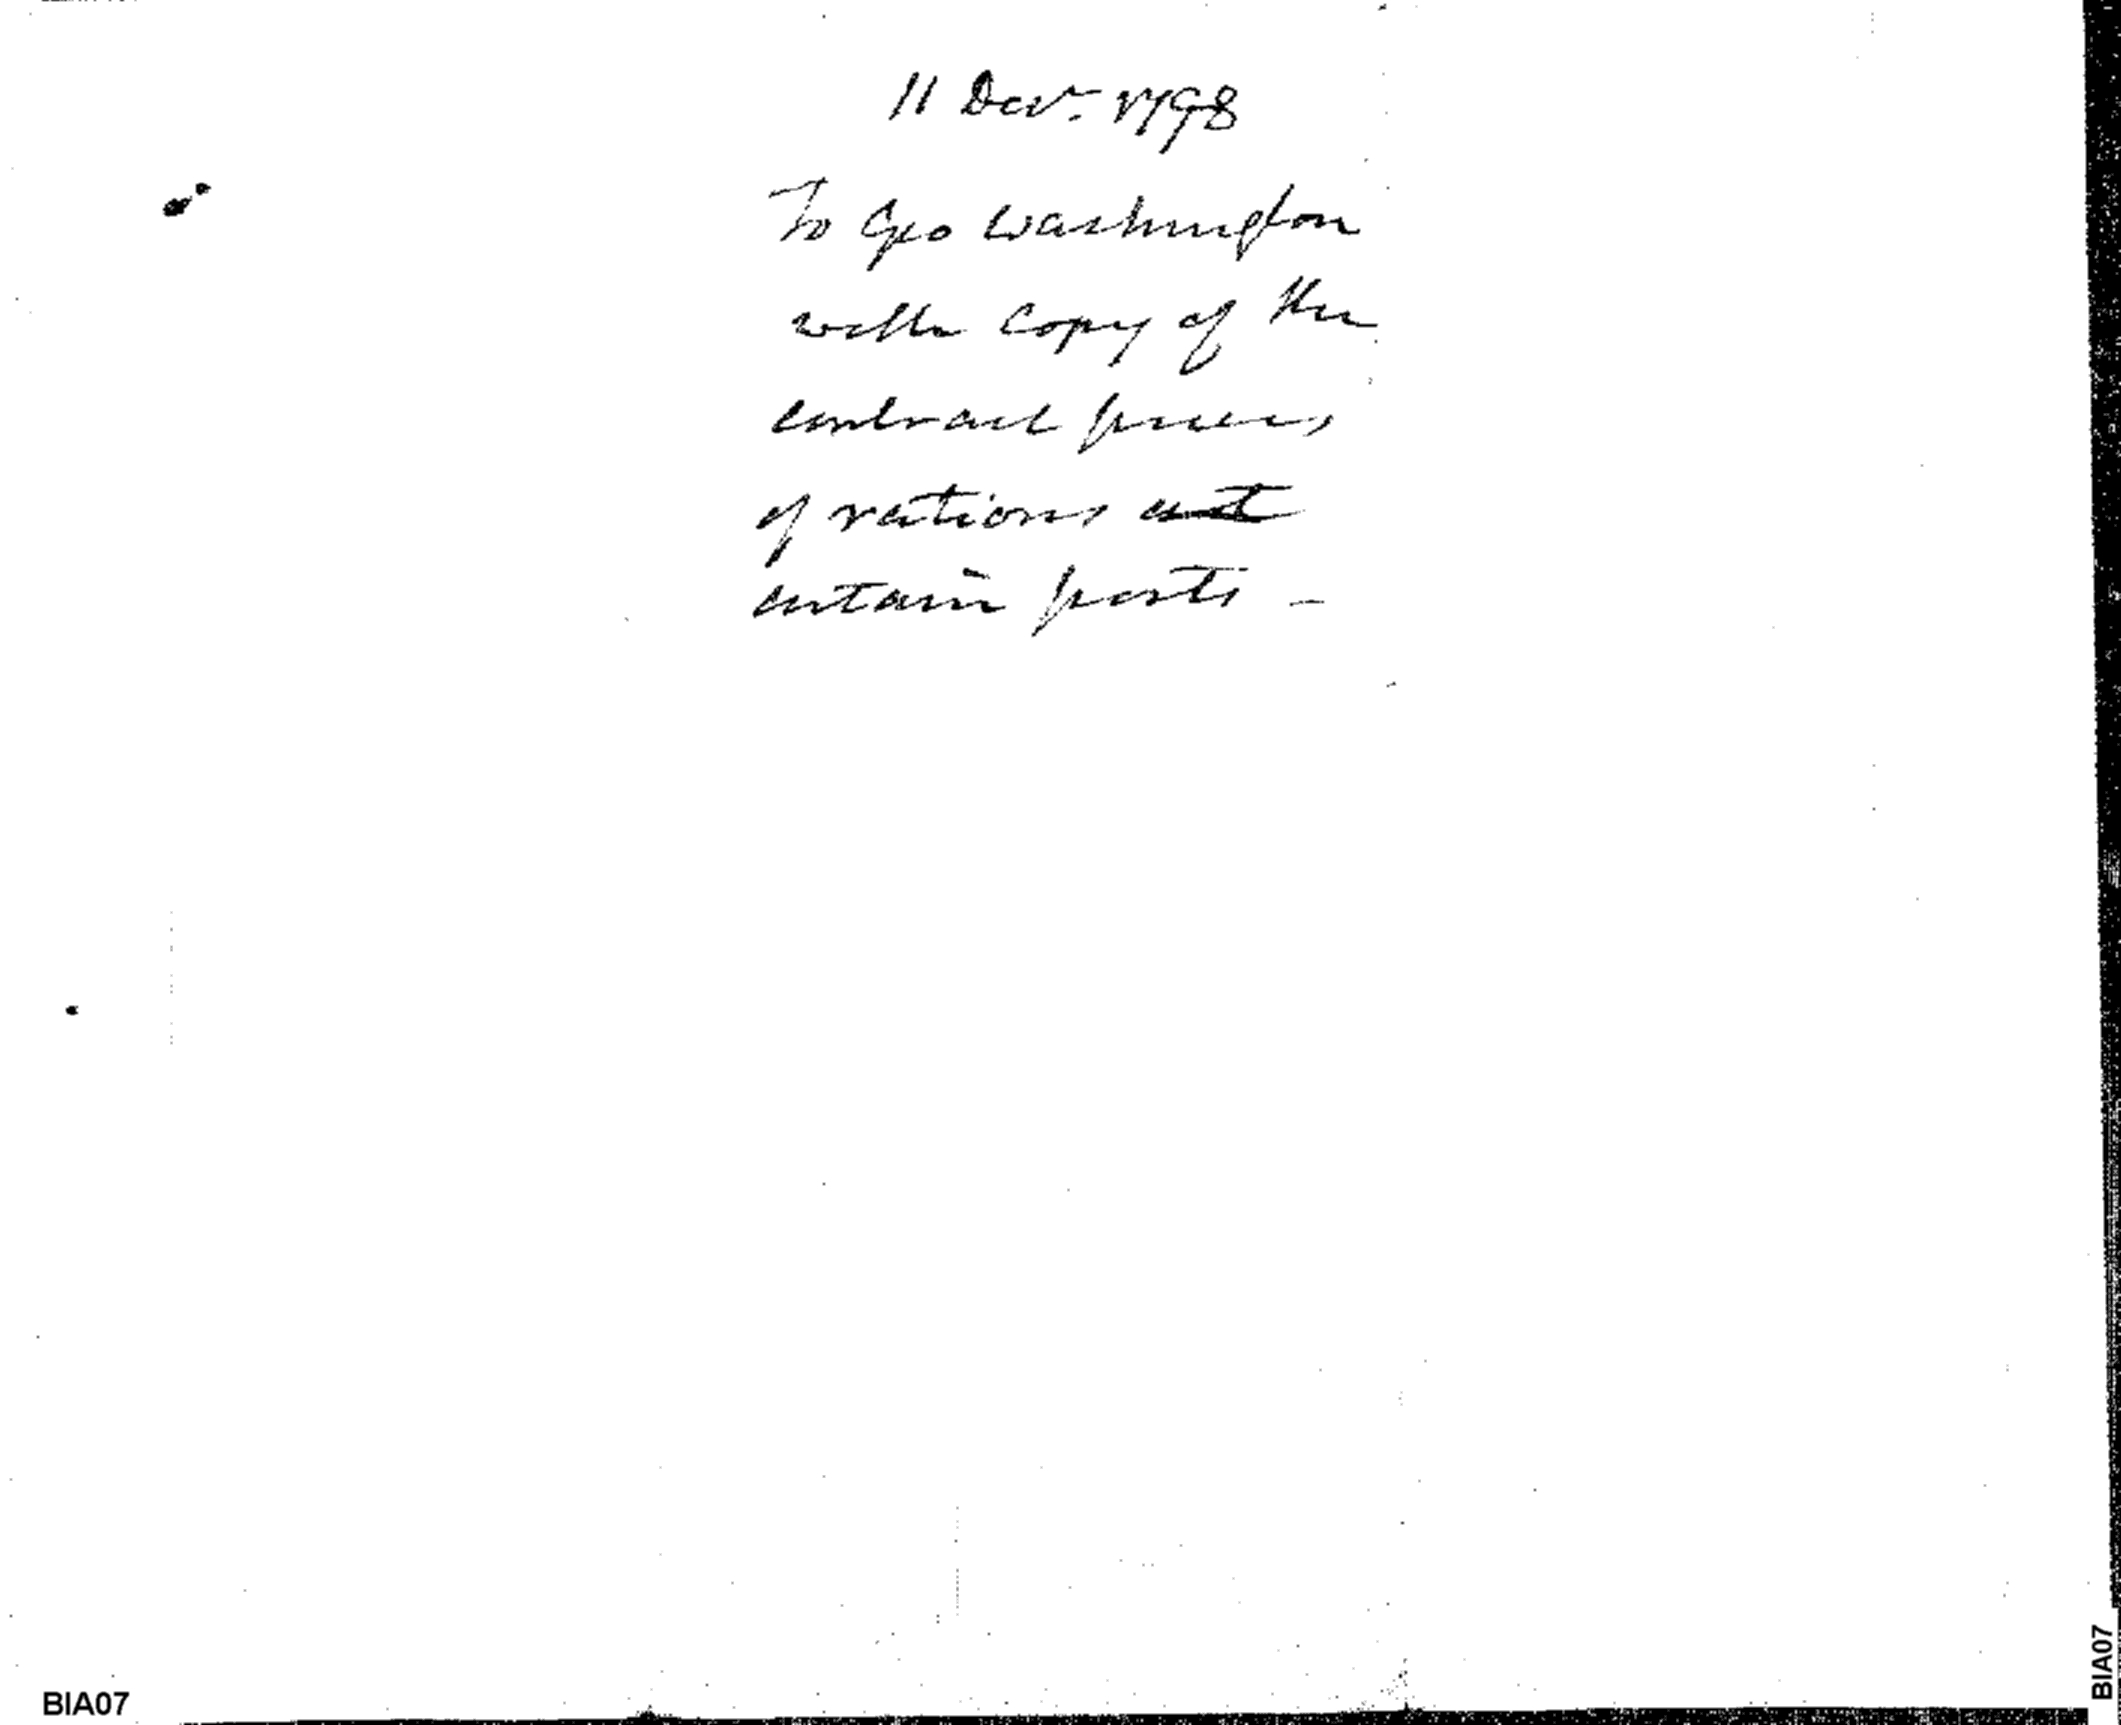 11 Decr. 1798
To Geo Washington
with copy of the
contract prices
of rations at
certain posts -
BIA07
BIA07